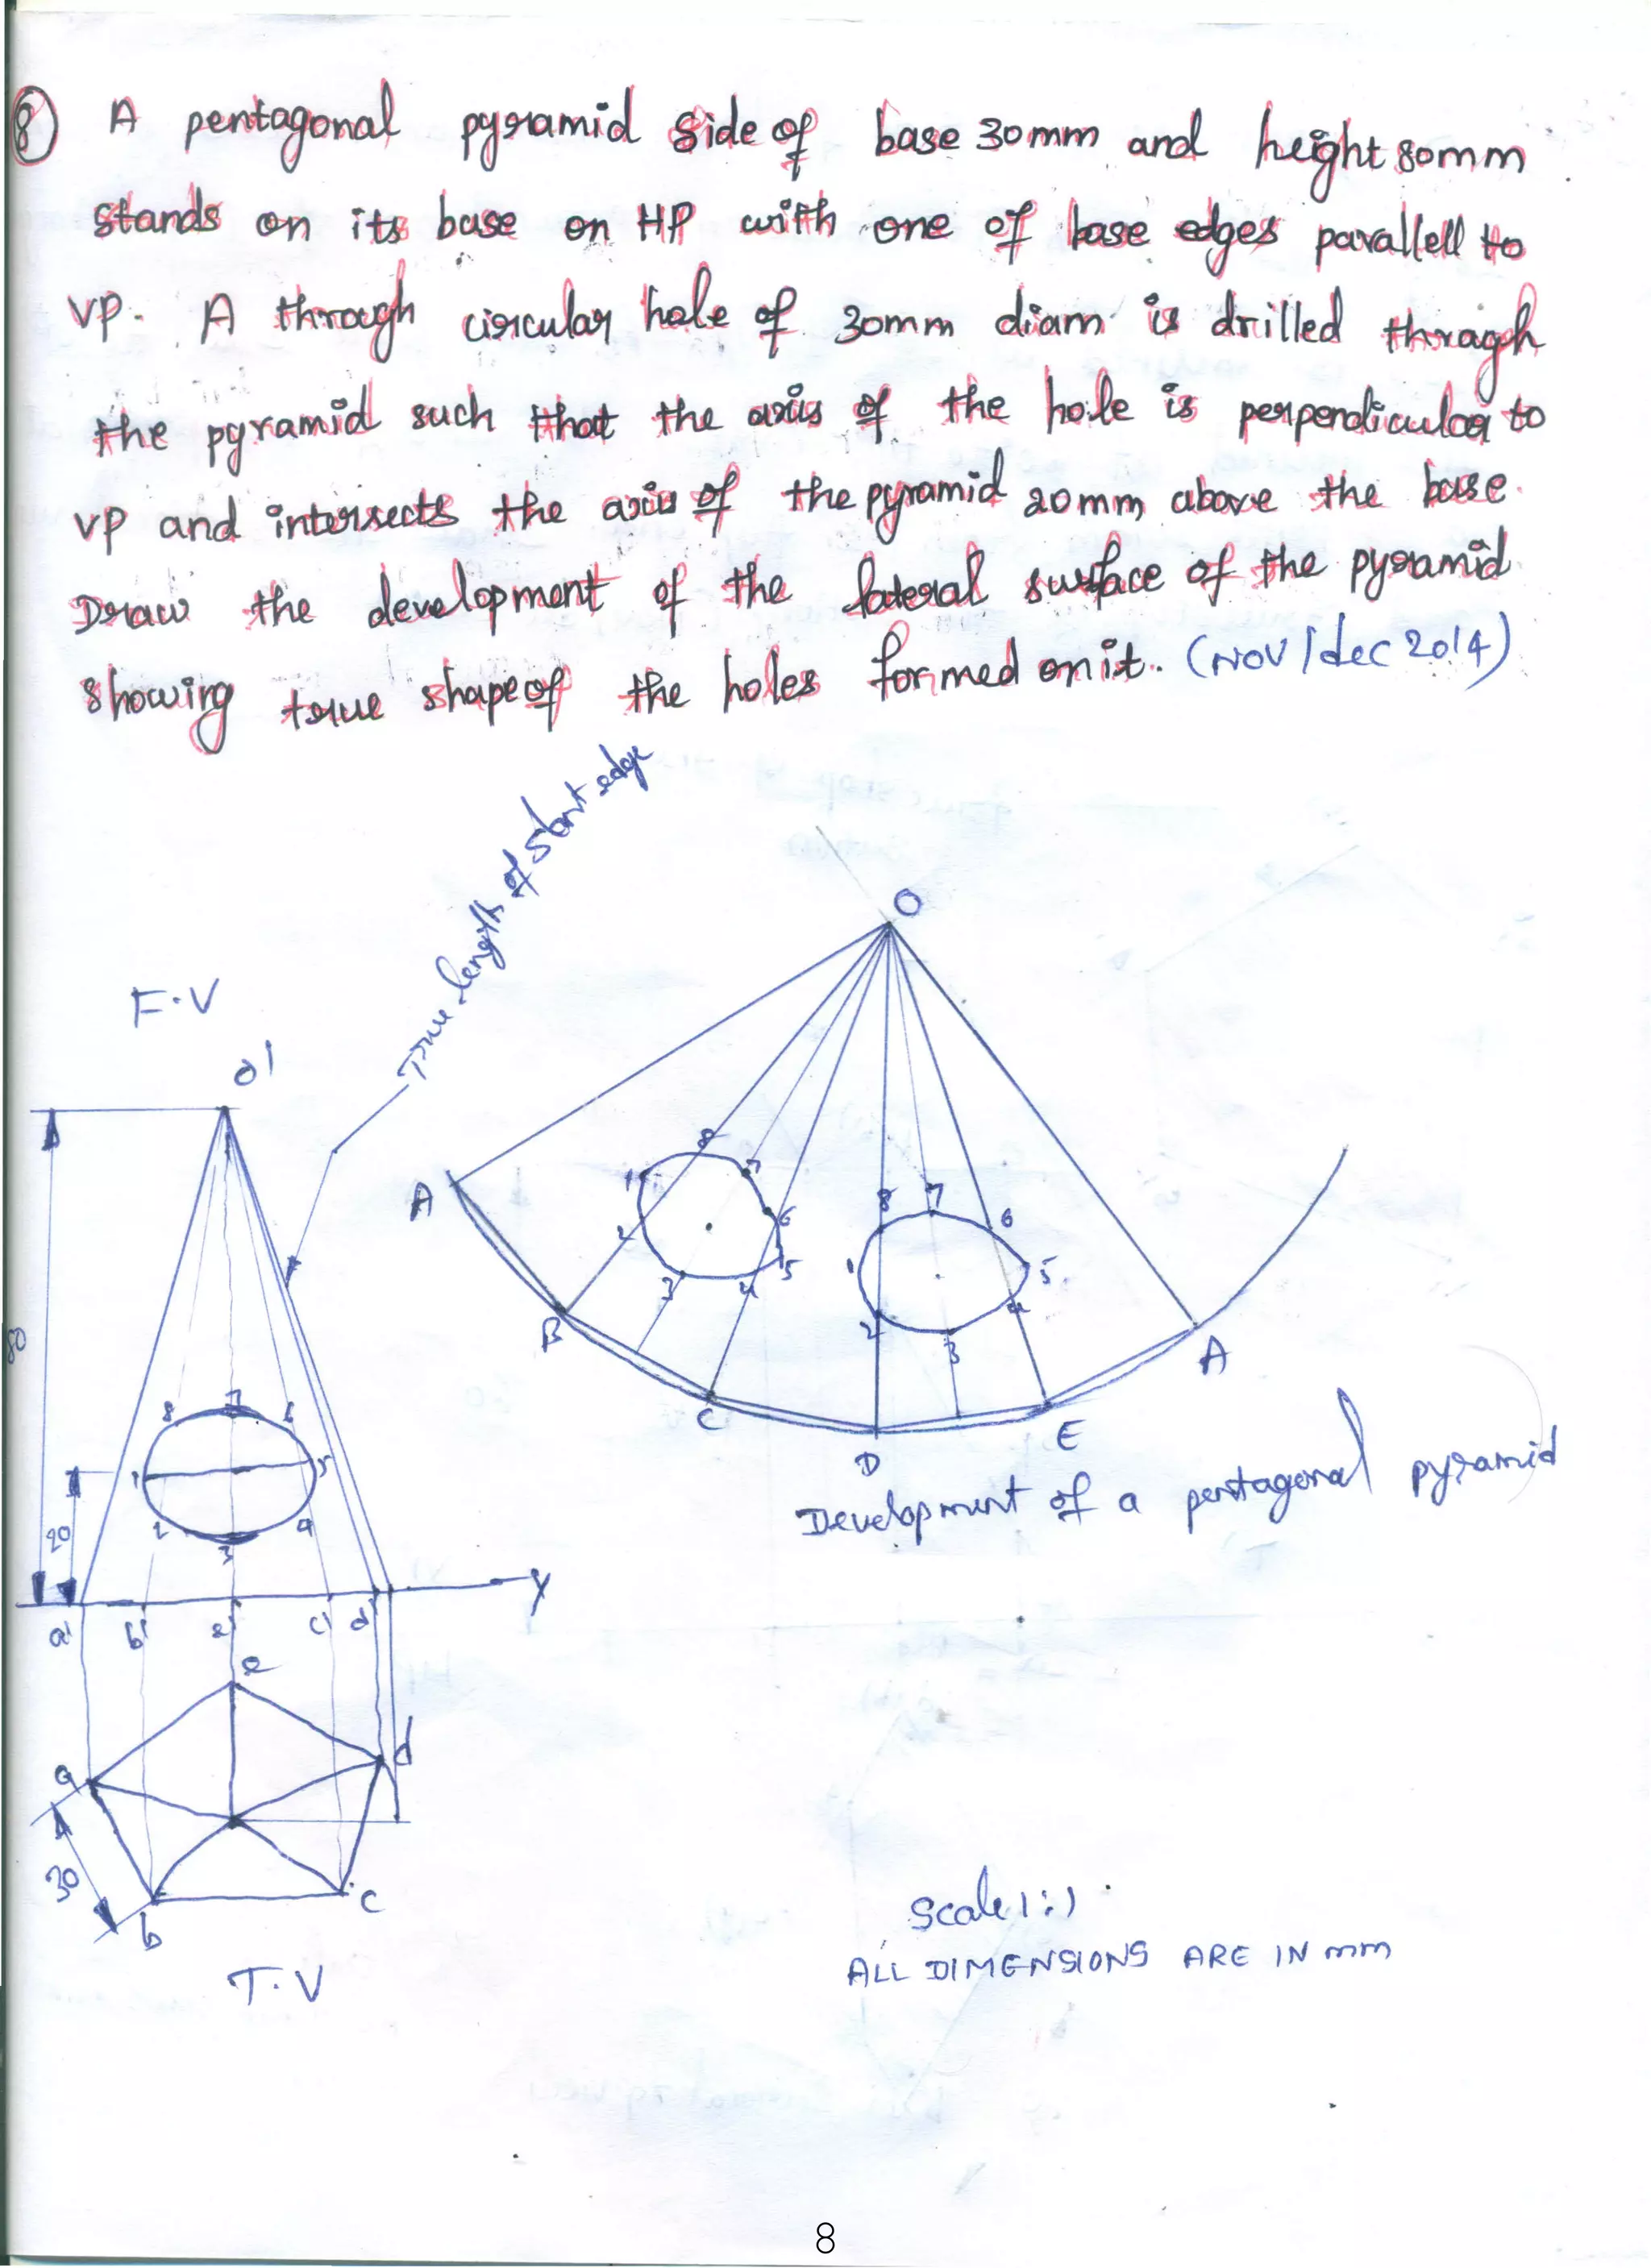 8 A pentagonal pyramid side of base 30mm and height 80mm
stands on its base on HP with one of base edges parallell to
VP. A through circular hole of 30mm diam is drilled through
the pyramid such that the axis of the hole is perpendicular to
VP and intersects the axis of the pyramid 20mm above the base.
Draw the development of the lateral surface of the pyramid
showing true shape of the holes formed on it. (Nov/dec 2014)
True length of slant edge
O
F.V
o'
A
8
1
7
2
6
3
4
5
8
7
6
1
5
2
4
3
B
C
D
E
A
80
8
7
6
1
5
2
4
3
20
Development of a pentagonal pyramid
Y
a' b' e' c' d'
e
a
d
30
b
c
T.V
Scale 1:1
ALL DIMENSIONS ARE IN mm
8